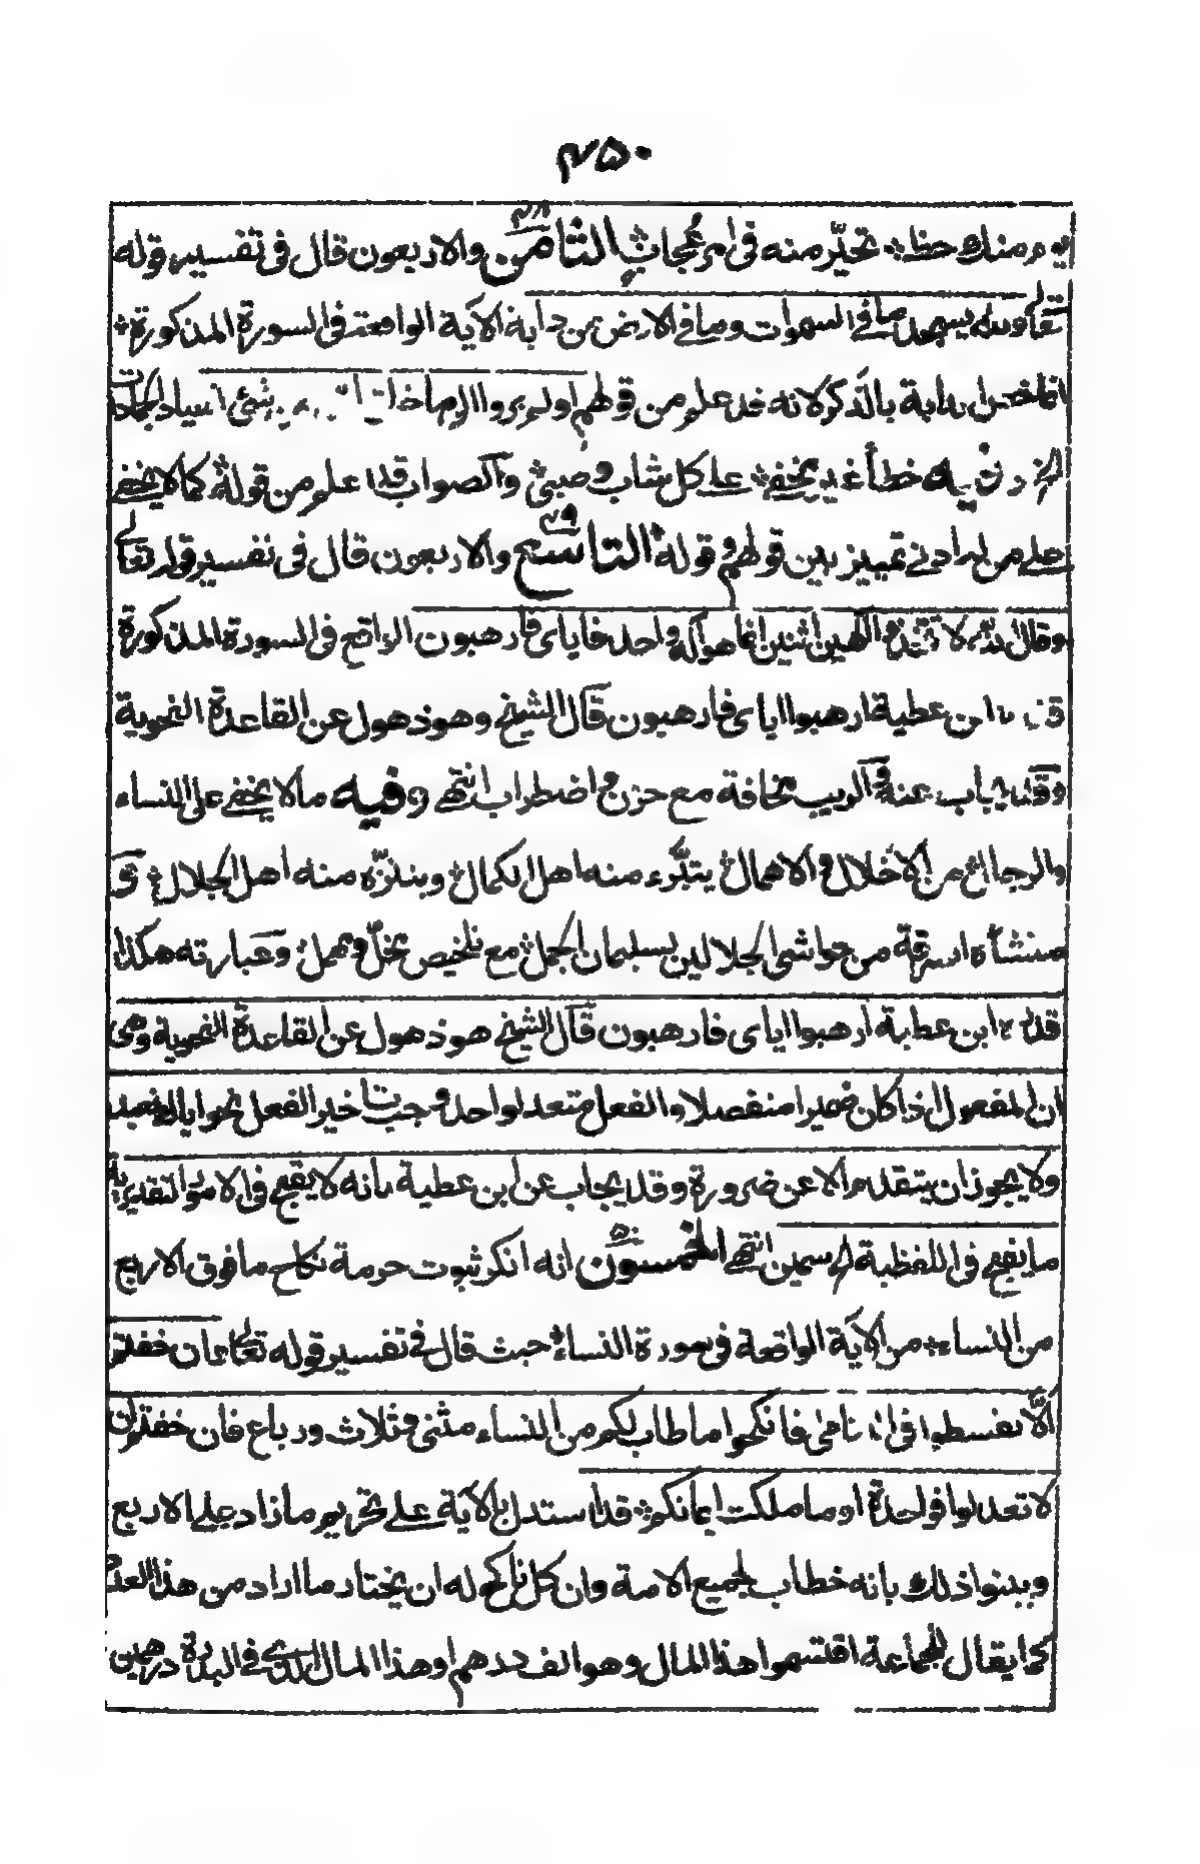 ۴۵۰
منه تحيّر منه في امر عُجاب الثامن ۴۸ والاربعون قال في تفسير قوله
تعالى ولله يسجد ما في السموات وما في الارض من دابة الآية الواقعة في السورة المذكورة
بالذكر لانه قد علم من قولهم اولم يروا الى ما خلق من شئ
خطأ غير مخفي على كل شاب وصبي والصواب قد علم من قوله كما لا يخفى
على من له ادنى تمييز بين قولهم وقوله التاسع ۴۹ والاربعون قال في تفسير قوله تعالى
وقال الله لا تتخذوا الهين اثنين انما هو اله واحد فاياى فارهبون الواقع في السورة المذكورة
ابن عطية ارهبوا اياى فارهبون قال الشيخ وهو ذهول عن القاعدة النحوية
وقد يجاب عنه مع حزن واضطراب انتهى وفيه ما لا يخفى على النساء
والرجال من الاخلال والاهمال يتبرّء منه اهل الكمال ويتنزّه منه اهل الجلال
منشأه السرقة من حواشي الجلالين لسليمان الجمل مع تلخيص مخلّ ومهمل وعبارته هكذا
قدره ابن عطية ارهبوا اياى فارهبون قال الشيخ هو ذهول عن القاعدة النحوية وهي
ان المفعول اذا كان ضميرا منفصلا والفعل متعد لواحد وجب تاخير الفعل نحو اياك نعبد
ولا يجوز ان يتقدم الا عن ضرورة وقد يجاب عن ابن عطية بانه لا يقبح في الامور التقديرية
ما يقبح في اللفظية اه سمين انتهى الخمسون ۵۰ انه انكر ثبوت حرمة نكاح ما فوق الاربع
من النساء من الآية الواقعة في سورة النساء حيث قال في تفسير قوله تعالى فان خفتم
الّا تقسطوا في اليتامى فانكحوا ما طاب لكم من النساء مثنى وثلاث ورباع فان خفتم ان
لا تعدلوا فواحدة او ما ملكت ايمانكم قد استدل بالآية على تحريم ما زاد على الاربع
وبينوا ذلك بانه خطاب لجميع الامة وان كل ناكح له ان يختار ما اراد من هذا العدد
كما يقال للجماعة اقتسموا هذا المال وهو الف درهم او هذا المال الذي في البدرة درهمين